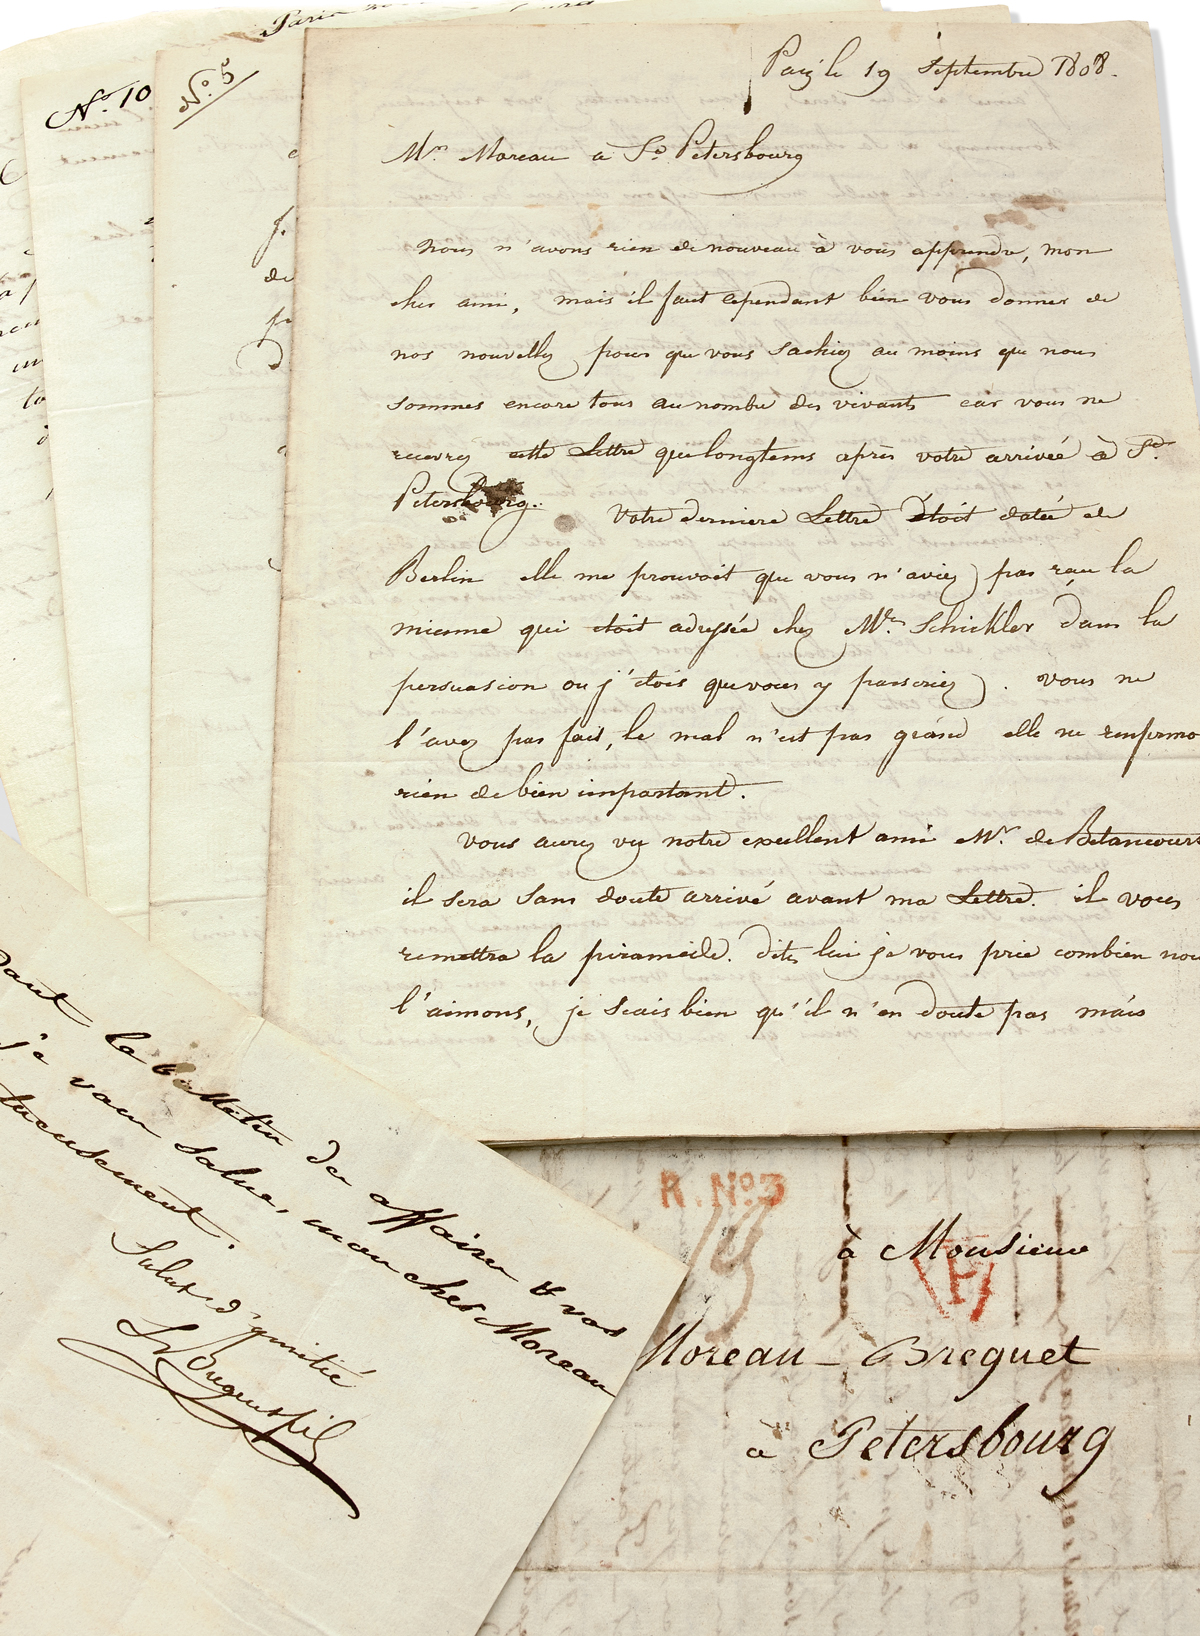 Paris le 19 Septembre 1808.
Mr. Moreau a St. Petersbourg
Nous n'avons rien de nouveau à vous apprendre, mon
cher ami, mais il faut cependant bien vous donner de
nos nouvelles pour que vous sachiez au moins que nous
sommes encore tous au nombre des vivants car vous ne
recevrez cette Lettre que longtems après votre arrivée à St.
Petersbourg. Votre derniere Lettre étoit datée de
Berlin elle me prouvoit que vous n'aviez pas reçu la
mienne qui étoit adressée chez Mr. Schickler dans la
persuasion ou j'étois que vous y passeriez. vous ne
l'avez pas fait, le mal n'est pas grand elle ne renfermo
rien de bien important.
Vous aurez vu notre excellent ami Mr. de Betancourt
il sera sans doute arrivé avant ma Lettre. il vous
remettra la piramide. dites lui je vous prie combien nou
l'aimons, je scais bien qu'il n'en doute pas mais
No. 5
No. 10
Paris
dant le bulletin de affaire & vos
je vous salue, mon cher Moreau
tueusement.
Salut d'amitié
Breguet fils
R. No. 3
19
à Monsieur
P
Moreau - Breguet
a Petersbourg